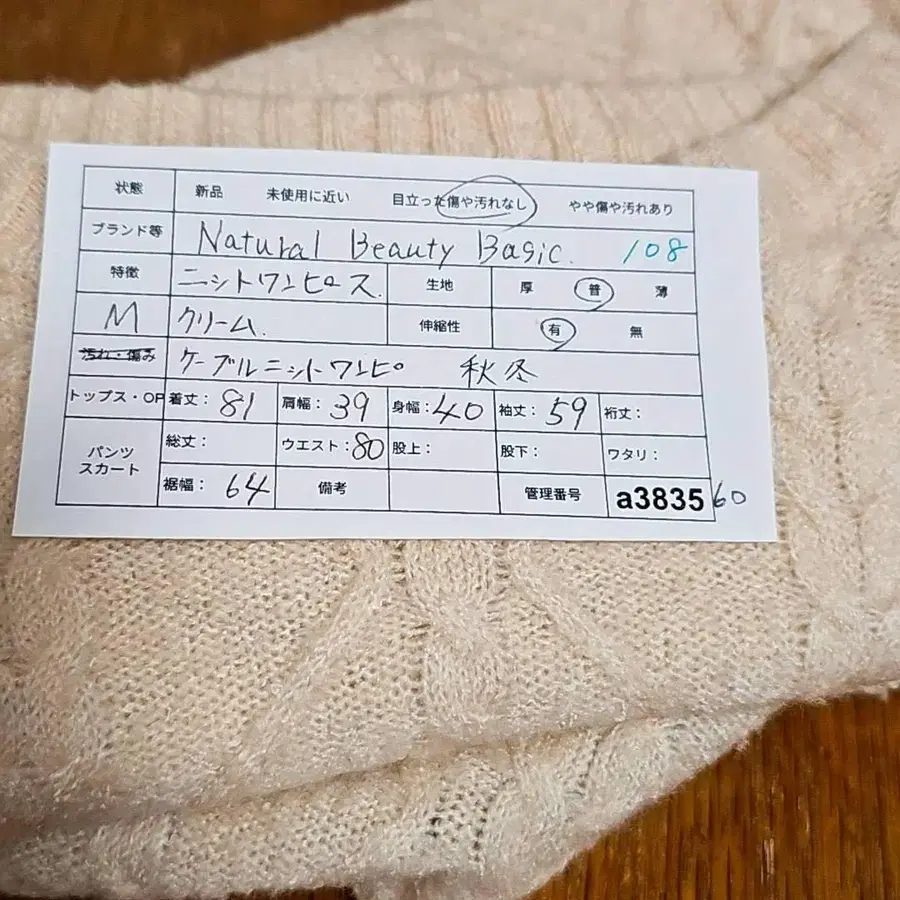 状態 新品 未使用に近い 目立った傷や汚れなし やや傷や汚れあり
ブランド等 Natural Beauty Basic. 108
特徴 ニットワンピース. 生地 厚 普 薄
M クリーム. 伸縮性 有 無
汚れ・傷み ケーブルニットワンピ 秋冬
トップス・OP 着丈: 81 肩幅: 39 身幅: 40 袖丈: 59 裄丈:
パンツ スカート 総丈: ウエスト: 80 股上: 股下: ワタリ:
裾幅: 64 備考 管理番号 a3835 60